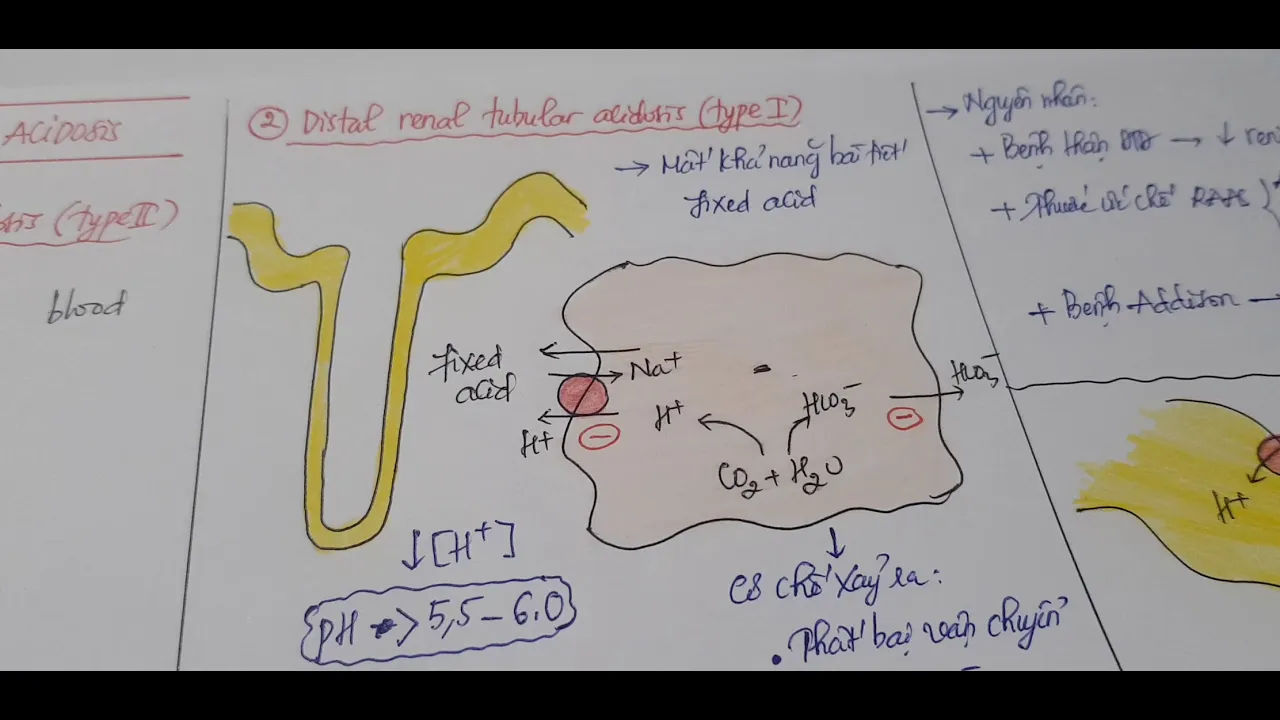 ACIDOSIS
(type II)
blood
② Distal renal tubular acidosis (type I)
→ Mất khả năng bài tiết
fixed acid
fixed
acid
Na+
H+
H+
HCO3-
HCO3-
CO2 + H2O
↓ [H+]
pH > 5,5 - 6.0
↓
Cơ chế xảy ra:
• Thất bại vận chuyển
→ Nguyên nhân:
+ Bệnh thận ĐTĐ → ↓ ren
+ Thuốc ức chế RAAS
+ Bệnh Addison →
H+